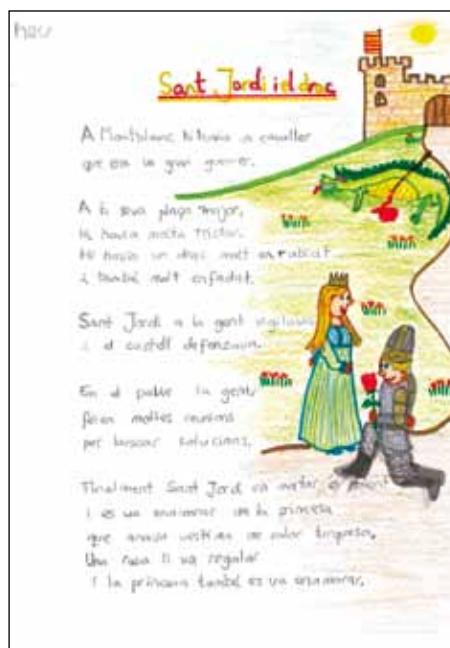 Sant Jordi i el drac
A Montblanc hi havia un cavaller
que era un gran guerrer.
A la seva plaça major,
hi havia molta tristor.
Hi havia un drac molt enrabiat
i també molt enfadat.
Sant Jordi a la gent vigilava
i el castell defensava.
En el poble la gent
feien moltes reunions
per buscar solucions.
Finalment Sant Jordi va matar el
i es va enamorar de la princesa
que anava vestida de color turquesa,
Una rosa li va regalar
i la princesa també es va enamorar.